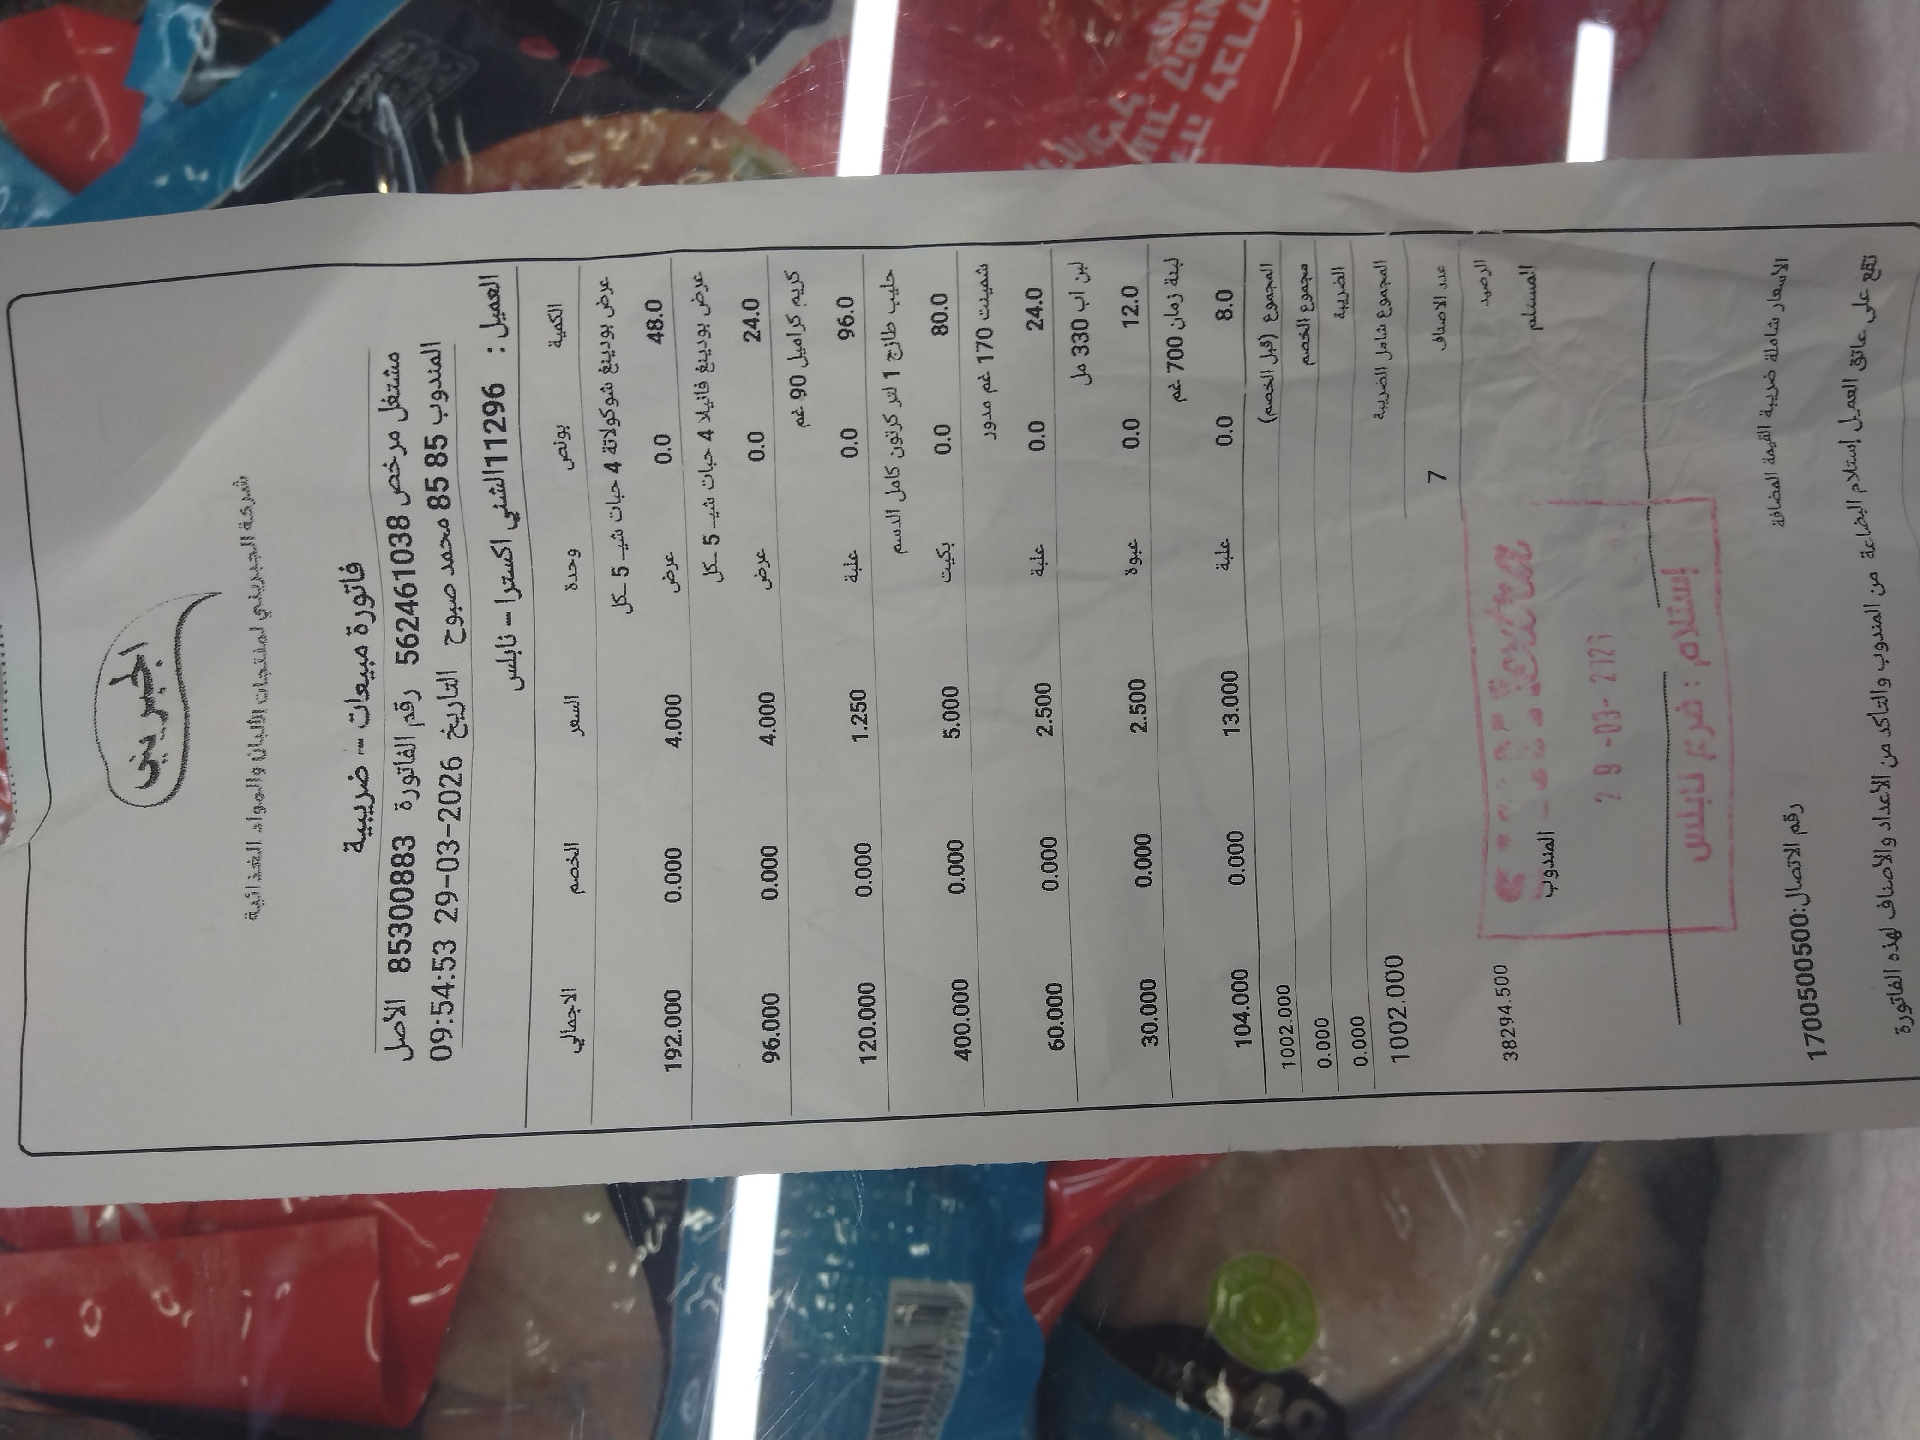 الجبريني
شركة الجبريني لمنتجات الألبان والمواد الغذائية
فاتورة مبيعات - ضريبية
مشتغل مرخص 562461038 رقم الفاتورة 85300883 الأصل
المندوب 85 85 محمد صبوح التاريخ 2026-03-29 09:54:53
العميل : 11296الشني اكسترا - نابلس
الكمية بونص وحدة السعر الخصم الاجمالي
عرض بودينغ شوكولاتة 4 حبات شيـ 5 ـكل
48.0 0.0 عرض 4.000 0.000 192.000
عرض بودينغ فانيلا 4 حبات شيـ 5 ـكل
24.0 0.0 عرض 4.000 0.000 96.000
كريم كراميل 90 غم
96.0 0.0 علبة 1.250 0.000 120.000
حليب طازج 1 لتر كرتون كامل الدسم
80.0 0.0 بكيت 5.000 0.000 400.000
شمينت 170 غم مدور
24.0 0.0 علبة 2.500 0.000 60.000
لبن اب 330 مل
12.0 0.0 عبوة 2.500 0.000 30.000
لبنة زمان 700 غم
8.0 0.0 علبة 13.000 0.000 104.000
المجموع (قبل الخصم) 1002.000
مجموع الخصم 0.000
الضريبة 0.000
المجموع شامل الضريبة 1002.000
عدد الاصناف 7
الرصيد 38294.500
المستلم المندوب
extra
29-03-
إستلام : فرع نابلس
الاسعار شاملة ضريبة القيمة المضافة
رقم الاتصال:1700500500
تقع على عاتق العميل إستلام البضاعة من المندوب والتأكد من الأعداد والأصناف لهذه الفاتورة